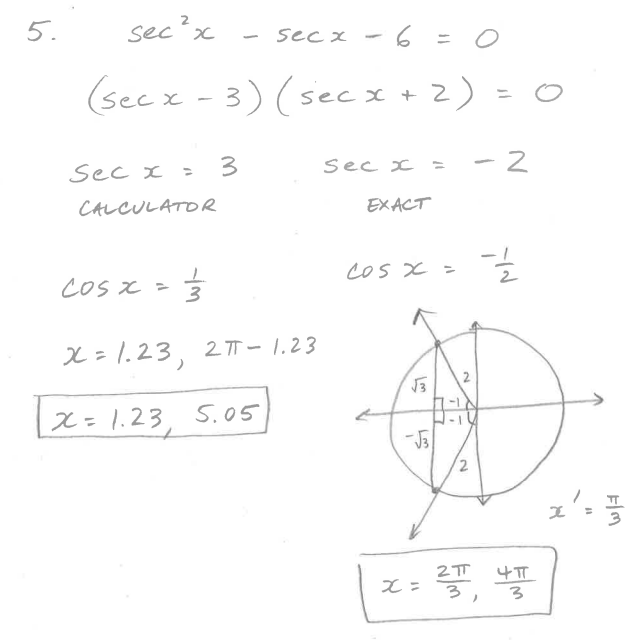 5. sec²x - sec x - 6 = 0
(sec x - 3)(sec x + 2) = 0
sec x = 3
CALCULATOR
cos x = 1/3
x = 1.23, 2π - 1.23
x = 1.23, 5.05
sec x = -2
EXACT
cos x = -1/2
√3 2
-1
-1
-√3
2
x' = π/3
x = 2π/3, 4π/3